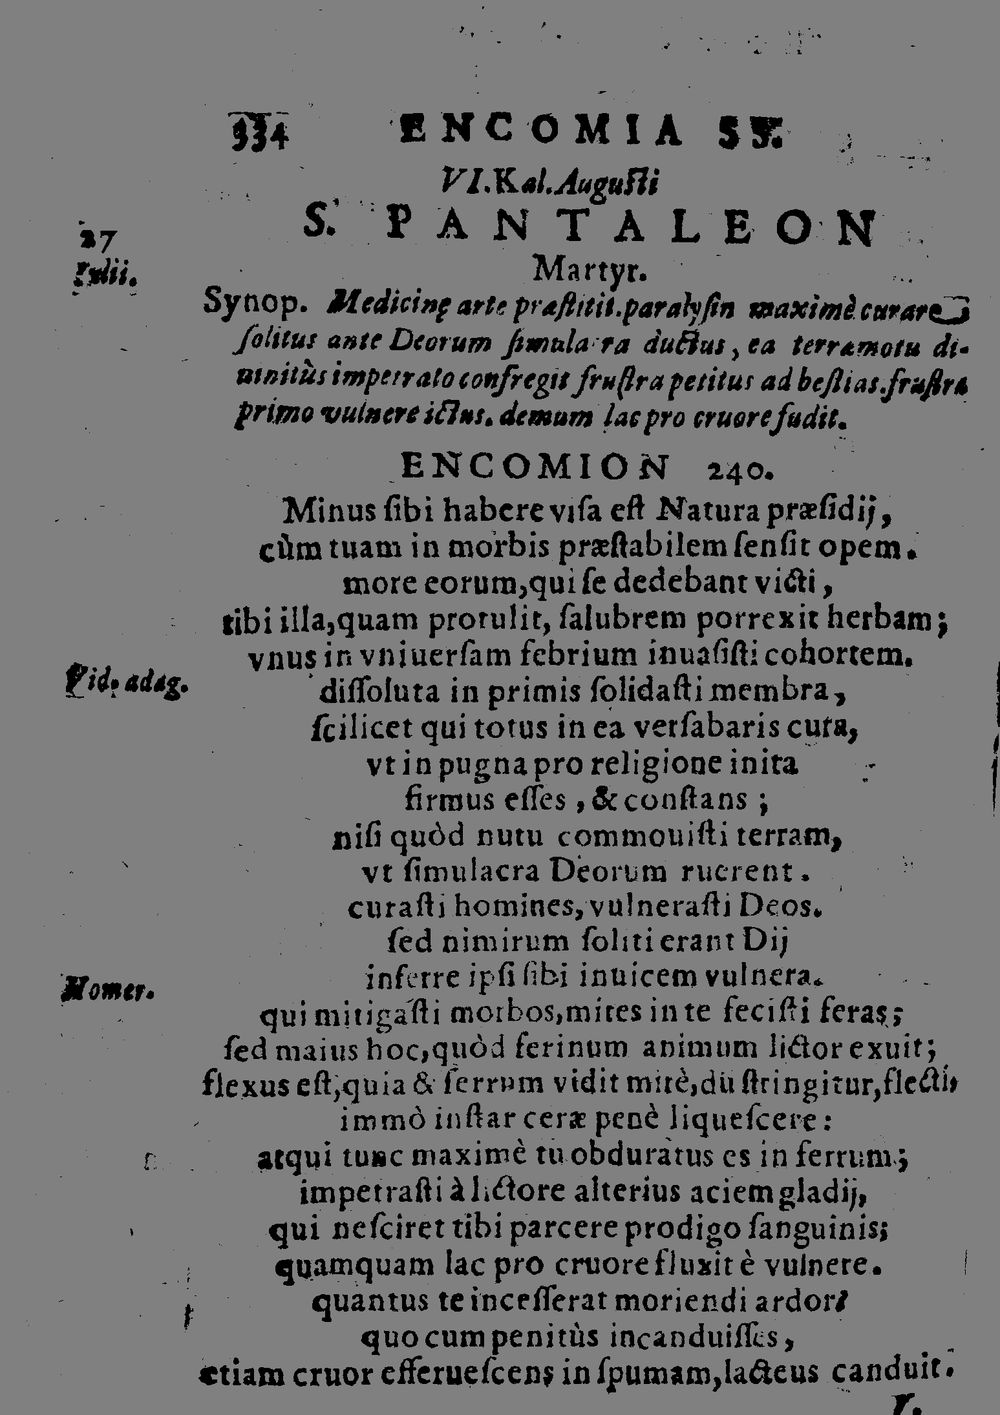 334 ENCOMIA SS.
VI. Kal. Augusti
S. PANTALEON
27
Iulii.
Martyr.
Synop. Medicinę arte præstitit. paralysin maximè curare
solitus ante Deorum simulacra ductus, ea terræmotu di-
uinitùs impetrato confregit frustra petitus ad bestias. frustra
primo vulnere ictus. demum lac pro cruore fudit.
ENCOMION 240.
Minus sibi habere visa est Natura præsidij,
cùm tuam in morbis præstabilem sensit opem.
more eorum, qui se dedebant victi,
tibi illa, quam protulit, salubrem porrexit herbam;
vnus in vniuersam febrium inuasisti cohortem.
Vid. adag.
dissoluta in primis solidasti membra,
scilicet qui totus in ea versabaris cura,
vt in pugna pro religione inita
firmus esses, & constans;
nisi quòd nutu commouisti terram,
vt simulacra Deorum ruerent.
curasti homines, vulnerasti Deos.
sed nimirum soliti erant Dij
inferre ipsi sibi inuicem vulnera.
Homer.
qui mitigasti morbos, mites in te fecisti feras;
sed maius hoc, quòd ferinum animum lictor exuit;
flexus est, quia & ferrum vidit mitè, dū stringitur, flecti,
immò instar ceræ penè liquescere:
atqui tunc maximè tu obduratus es in ferrum;
impetrasti à lictore alterius aciem gladij,
qui nesciret tibi parcere prodigo sanguinis;
quamquam lac pro cruore fluxit è vulnere.
quantus te incesserat moriendi ardor!
quo cum penitùs incanduisses,
etiam cruor efferuescens in spumam, lacteus canduit.
V.